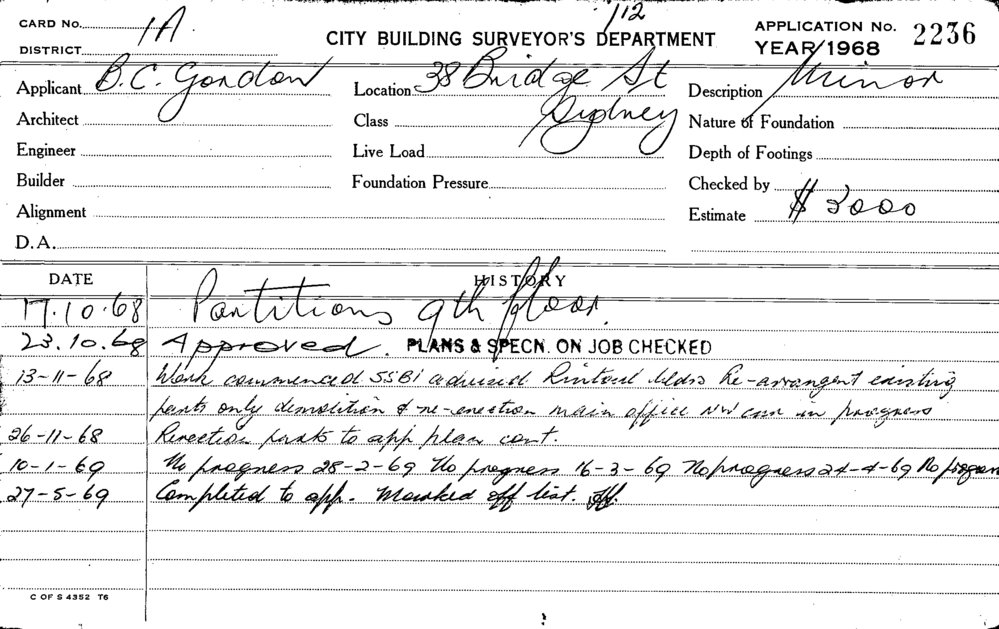 112
CARD No. 1A
DISTRICT
CITY BUILDING SURVEYOR'S DEPARTMENT
APPLICATION No. 2236
YEAR/1968
Applicant B.C. Gordon
Location 38 Bridge St
Sydney
Description Minor
Architect
Class
Nature of Foundation
Engineer
Live Load
Depth of Footings
Builder
Foundation Pressure
Checked by
Alignment
Estimate $ 2000
D.A.
DATE HISTORY
17.10.68 Partitions 9th floor.
23.10.68 Approved. PLANS & SPECN. ON JOB CHECKED
13-11-68 Work commenced SSBI advised Rintoul bldrs Re-arrangent existing
parts only demolition & re-erection main office NW in progress
26-11-68 Rerection parts to app plan cont.
10-1-69 No progress 28-2-69 No progress 16-3-69 No progress 24-4-69 No progress
27-5-69 Completed to app. Marked off list.
C OF S 4352 T6